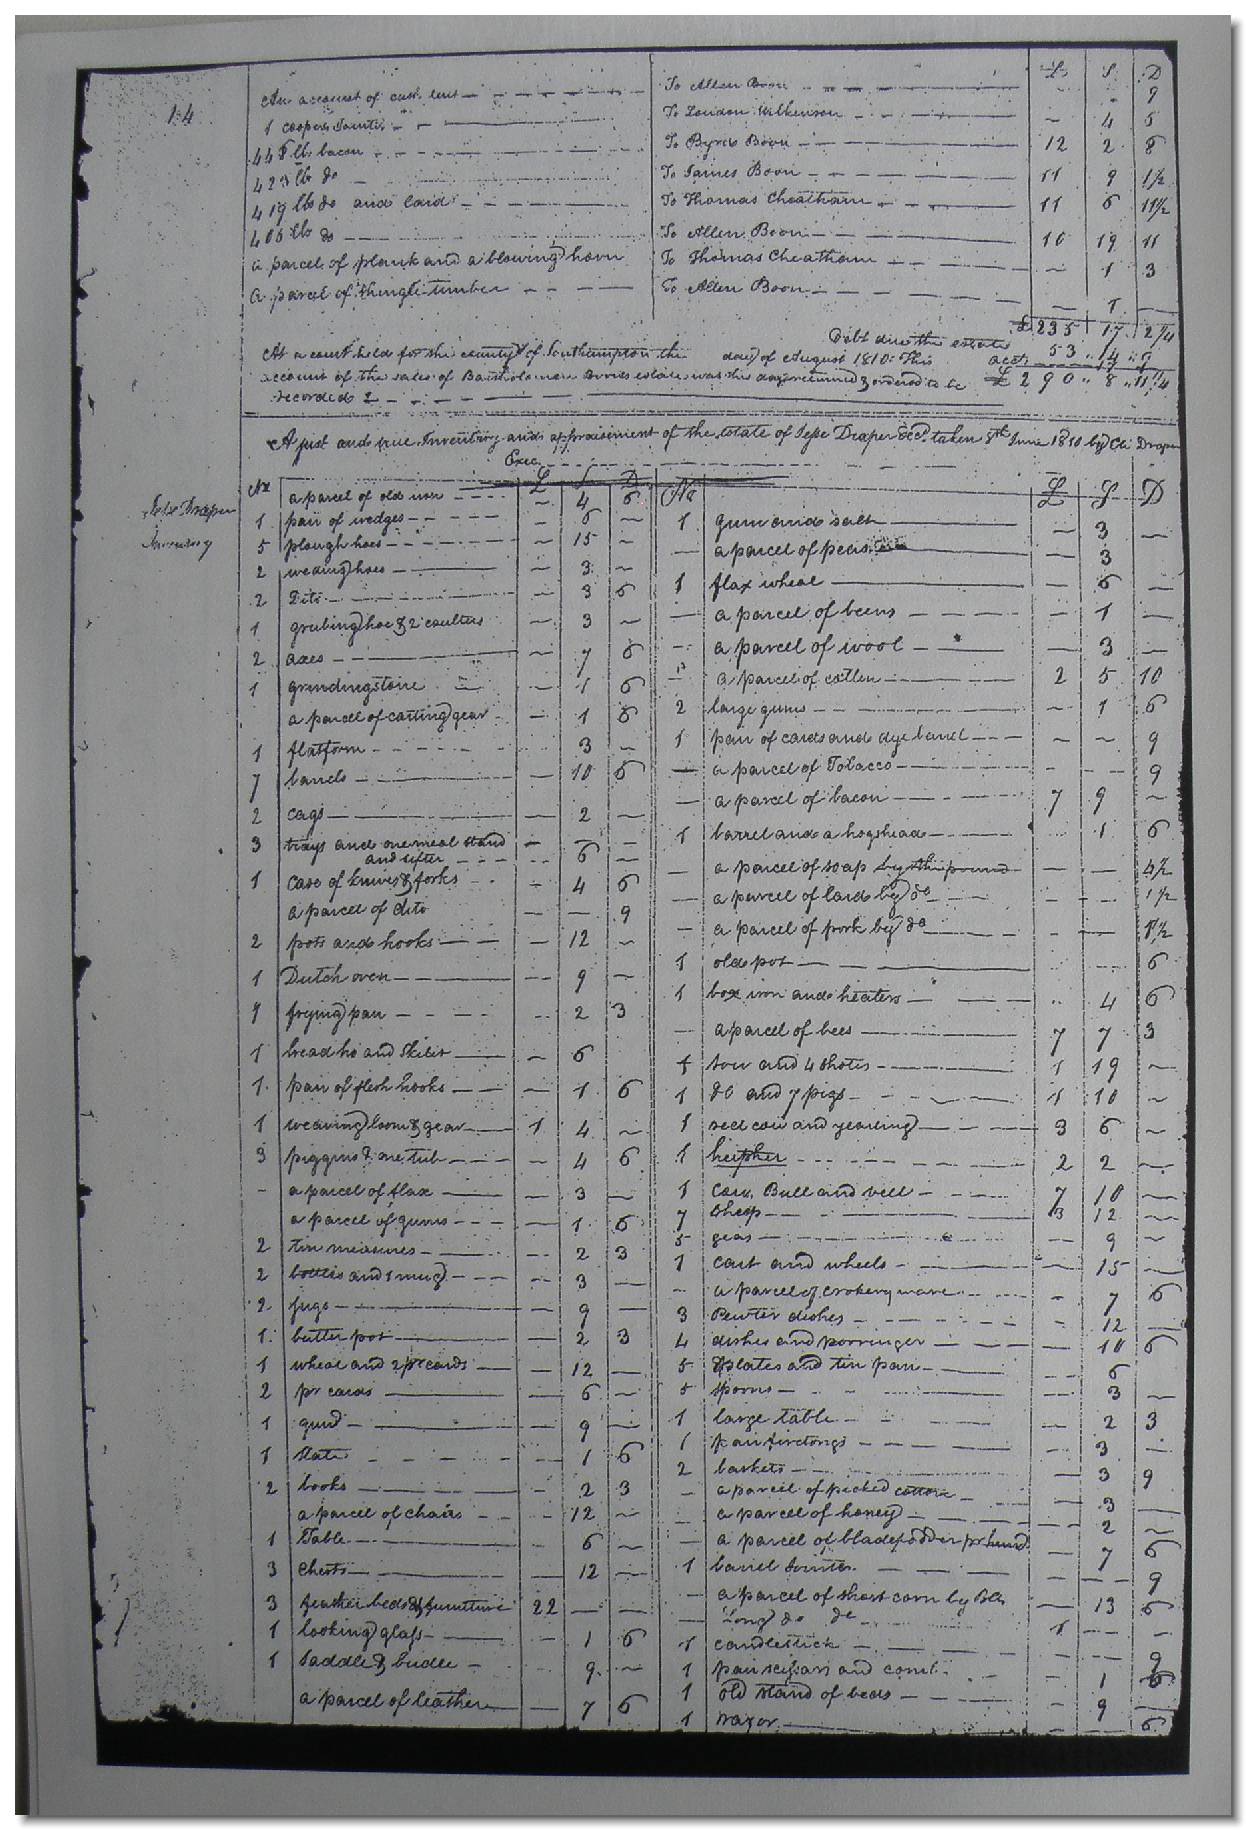 14
£ S D
An account of cash lent — To Allen Boon — 9
1 coopers Jointer — To Loudon Wilkenson — 4 5
448 lb bacon — To Byrd Boon — 12 2 8
423 lb do — To James Boon — 11 9 1 1/2
419 lbs do and lard — To Thomas Cheatham — 11 6 11 1/2
406 lb do — To Allen Boon — 10 19 11
a parcel of plank and a blowing horn To Thomas Cheatham — 1 3
a parcel of shingle timber — To Allen Boon — 1 —
£ 235 17 2 1/4
Debt due the estate
acct 53 14 9
£ 290 8 11 1/4
At a court held for the county of Southampton the day of August 1810. This
account of the sales of Bartholomew Boons estate was this day returned & ordered to be
recorded
A just and true Inventory and appraisement of the estate of Jesse Draper Decd. taken 8th June 1810 by Draper
Exec
Jesse Draper
Inventory
No £ S D
a parcel of old iron — 4 6
1 pair of wedges — 6 —
5 plough hoes — 15 —
2 weading hoes — 3 —
2 Dito — 3 6
1 grubing hoe & 2 coulters — 3 —
2 axes — 7 6
1 grindingstone — 1 6
a parcel of carting gear — 1 6
1 flatform — 3 —
7 barrels — 10 6
2 cags — 2 —
3 trays and one meal stand
and sifter — 6 —
1 case of knives & forks — 4 6
a parcel of dito — — 9
2 pots and hooks — 12 —
1 Dutch oven — 9 —
1 frying pan — 2 3
1 bread ho and skilet — 6
1 pair of flesh hooks — 1 6
1 weaving loom & gear 1 4 —
3 piggins & one tub — 4 6
– a parcel of flax — 3 —
a parcel of gums — 1 6
2 tin measures — 2 3
2 bottles and 1 mug — 3 —
2 jugs — 9 —
1 butter pot — 2 3
1 wheal and 2 pr cards — 12 —
2 pr cards — 6 —
1 — 9 —
1 slate — 1 6
2 books — 2 3
a parcel of chairs — 12 —
1 Table — 6 —
3 chests — 12 —
3 feather beds & furniture 22 — —
1 looking glass — 1 6
1 saddle & bridle — 9 —
a parcel of leather — 7 6
No £ S D
1 gum and salt — 3 —
— a parcel of peas — 3
1 flax wheal — 6 —
— a parcel of beens — 1 —
— a parcel of wool — 3 —
— a parcel of cotten — 2 5 10
2 large gums — 1 6
1 pair of cards and dye — — 9
— a parcel of Tobacco — — 9
— a parcel of bacon — 7 9 —
1 barrel and a hogshead — 1 6
— a parcel of soap by the pound — — 4 1/2
— a parcel of lard by do — — 1 1/2
— a parcel of pork by do — —
1 old pot — — 6
1 box iron and heaters — 4 6
— a parcel of bees — 7 7 3
1 sow and 4 shotes — 1 19 —
1 do and 7 pigs — 1 10 —
1 red cow and yearling — 3 6 —
1 heipher — 2 2 —
1 cow, Bull and bell — 7 10 —
7 Sheep — 3 12 —
5 gees — 9 —
1 cart and wheels — 15 —
– a parcel of crokery ware — 7 6
3 Pewter dishes — 12 —
4 dishes and porringer — 10 6
5 plates and tin pan — 6
5 spoons — 3 —
1 large table — 2 3
1 pair firetongs — 3 —
2 baskets — 3 9
– a parcel of picked cotton — 3 —
a parcel of honey — 2 —
— a parcel of bladefodder pr — 7 6
1 barrel Jointer — — 9
— a parcel of short corn by — 13 6
— Long do do 1 — —
1 candlestick — — 9
1 pair scissars and comb — 1 6
1 old stand of beds — 9 —
1 razor — 6